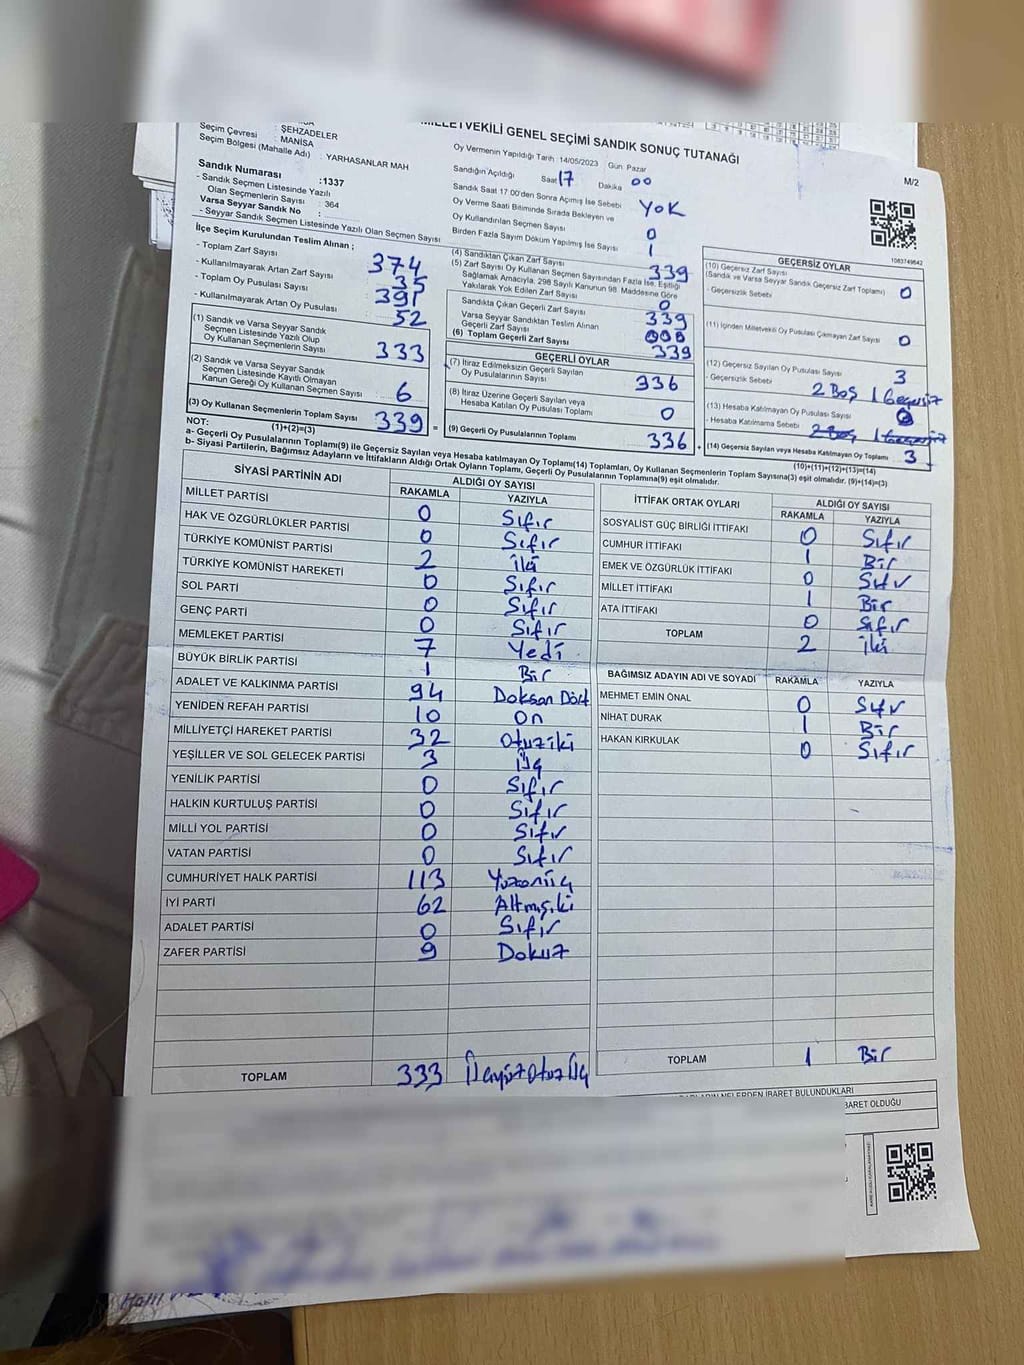 MİLLETVEKİLİ GENEL SEÇİMİ SANDIK SONUÇ TUTANAĞI
M/2
ŞEHZADELER
Seçim Çevresi : MANİSA
Seçim Bölgesi (Mahalle Adı) : YARHASANLAR MAH
Sandık Numarası :1337
- Sandık Seçmen Listesinde Yazılı
Olan Seçmenlerin Sayısı : 364
Varsa Seyyar Sandık No :
- Seyyar Sandık Seçmen Listesinde Yazılı Olan Seçmen Sayısı
Oy Vermenin Yapıldığı Tarih : 14/05/2023 Gün: Pazar
Sandığın Açıldığı Saat 17 Dakika 00
Sandık Saat 17:00'den Sonra Açımış İse Sebebi YOK
Oy Verme Saati Bitiminde Sırada Bekleyen ve
Oy Kullandırılan Seçmen Sayısı 0
Birden Fazla Sayım Döküm Yapılmış İse Sayısı 1
1083749642
İlçe Seçim Kurulundan Teslim Alınan ;
- Toplam Zarf Sayısı 374
- Kullanılmayarak Artan Zarf Sayısı 35
- Toplam Oy Pusulası Sayısı 391
- Kullanılmayarak Artan Oy Pusulası 52
(1) Sandık ve Varsa Seyyar Sandık
Seçmen Listesinde Yazılı Olup
Oy Kullanan Seçmenlerin Sayısı 333
(2) Sandık ve Varsa Seyyar Sandık
Seçmen Listesinde Kayıtlı Olmayan
Kanun Gereği Oy Kullanan Seçmen Sayısı 6
(3) Oy Kullanan Seçmenlerin Toplam Sayısı 339 =
(1)+(2)=(3)
(4) Sandıktan Çıkan Zarf Sayısı 339
(5) Zarf Sayısı Oy Kullanan Seçmen Sayısından Fazla İse, Eşitliği
Sağlamak Amacıyla, 298 Sayılı Kanunun 98. Maddesine Göre
Yakılarak Yok Edilen Zarf Sayısı 0
Sandıkta Çıkan Geçerli Zarf Sayısı 339
Varsa Seyyar Sandıktan Teslim Alınan
Geçerli Zarf Sayısı 000
(6) Toplam Geçerli Zarf Sayısı 339
GEÇERLİ OYLAR
(7) İtiraz Edilmeksizin Geçerli Sayılan
Oy Pusulalarının Sayısı 336
(8) İtiraz Üzerine Geçerli Sayılan veya
Hesaba Katılan Oy Pusulası Toplamı 0
(9) Geçerli Oy Pusulalarının Toplamı 336 +
GEÇERSİZ OYLAR
(10) Geçersiz Zarf Sayısı
(Sandık ve Varsa Seyyar Sandık Geçersiz Zarf Toplamı) 0
- Geçersizlik Sebebi
(11) İçinden Milletvekili Oy Pusulası Çıkmayan Zarf Sayısı 0
(12) Geçersiz Sayılan Oy Pusulası Sayısı 3
- Geçersizlik Sebebi 2 Boş 1 Geçersiz
(13) Hesaba Katılmayan Oy Pusulası Sayısı 0
- Hesaba Katılmama Sebebi 2 Boş 1 Geçersiz
(14) Geçersiz Sayılan veya Hesaba Katılmayan Oy Toplamı 3
(10)+(11)+(12)+(13)=(14)
NOT:
a- Geçerli Oy Pusulalarının Toplamı(9) ile Geçersiz Sayılan veya Hesaba katılmayan Oy Toplamı(14) Toplamları, Oy Kullanan Seçmenlerin Toplam Sayısına(3) eşit olmalıdır. (9)+(14)=(3)
b- Siyasi Partilerin, Bağımsız Adayların ve İttifakların Aldığı Ortak Oyların Toplamı, Geçerli Oy Pusulalarının Toplamına(9) eşit olmalıdır.
SİYASİ PARTİNİN ADI ALDIĞI OY SAYISI
RAKAMLA YAZIYLA
MİLLET PARTİSİ 0 Sıfır
HAK VE ÖZGÜRLÜKLER PARTİSİ 0 Sıfır
TÜRKİYE KOMÜNİST PARTİSİ 2 iki
TÜRKİYE KOMÜNİST HAREKETİ 0 Sıfır
SOL PARTİ 0 Sıfır
GENÇ PARTİ 0 Sıfır
MEMLEKET PARTİSİ 7 Yedi
BÜYÜK BİRLİK PARTİSİ 1 Bir
ADALET VE KALKINMA PARTİSİ 94 Doksan Dört
YENİDEN REFAH PARTİSİ 10 On
MİLLİYETÇİ HAREKET PARTİSİ 32 Otuziki
YEŞİLLER VE SOL GELECEK PARTİSİ 3 Üç
YENİLİK PARTİSİ 0 Sıfır
HALKIN KURTULUŞ PARTİSİ 0 Sıfır
MİLLİ YOL PARTİSİ 0 Sıfır
VATAN PARTİSİ 0 Sıfır
CUMHURİYET HALK PARTİSİ 113 Yüzonüç
İYİ PARTİ 62 Altmışiki
ADALET PARTİSİ 0 Sıfır
ZAFER PARTİSİ 9 Dokuz
TOPLAM 333 Üçyüz Otuz Üç
İTTİFAK ORTAK OYLARI ALDIĞI OY SAYISI
RAKAMLA YAZIYLA
SOSYALİST GÜÇ BİRLİĞİ İTTİFAKI 0 Sıfır
CUMHUR İTTİFAKI 1 Bir
EMEK VE ÖZGÜRLÜK İTTİFAKI 0 Sıfır
MİLLET İTTİFAKI 1 Bir
ATA İTTİFAKI 0 Sıfır
TOPLAM 2 iki
BAĞIMSIZ ADAYIN ADI VE SOYADI RAKAMLA YAZIYLA
MEHMET EMİN ÖNAL 0 Sıfır
NİHAT DURAK 1 Bir
HAKAN KIRKULAK 0 Sıfır
TOPLAM 1 Bir
NELERDEN İBARET BULUNDUKLARI
İBARET OLDUĞU